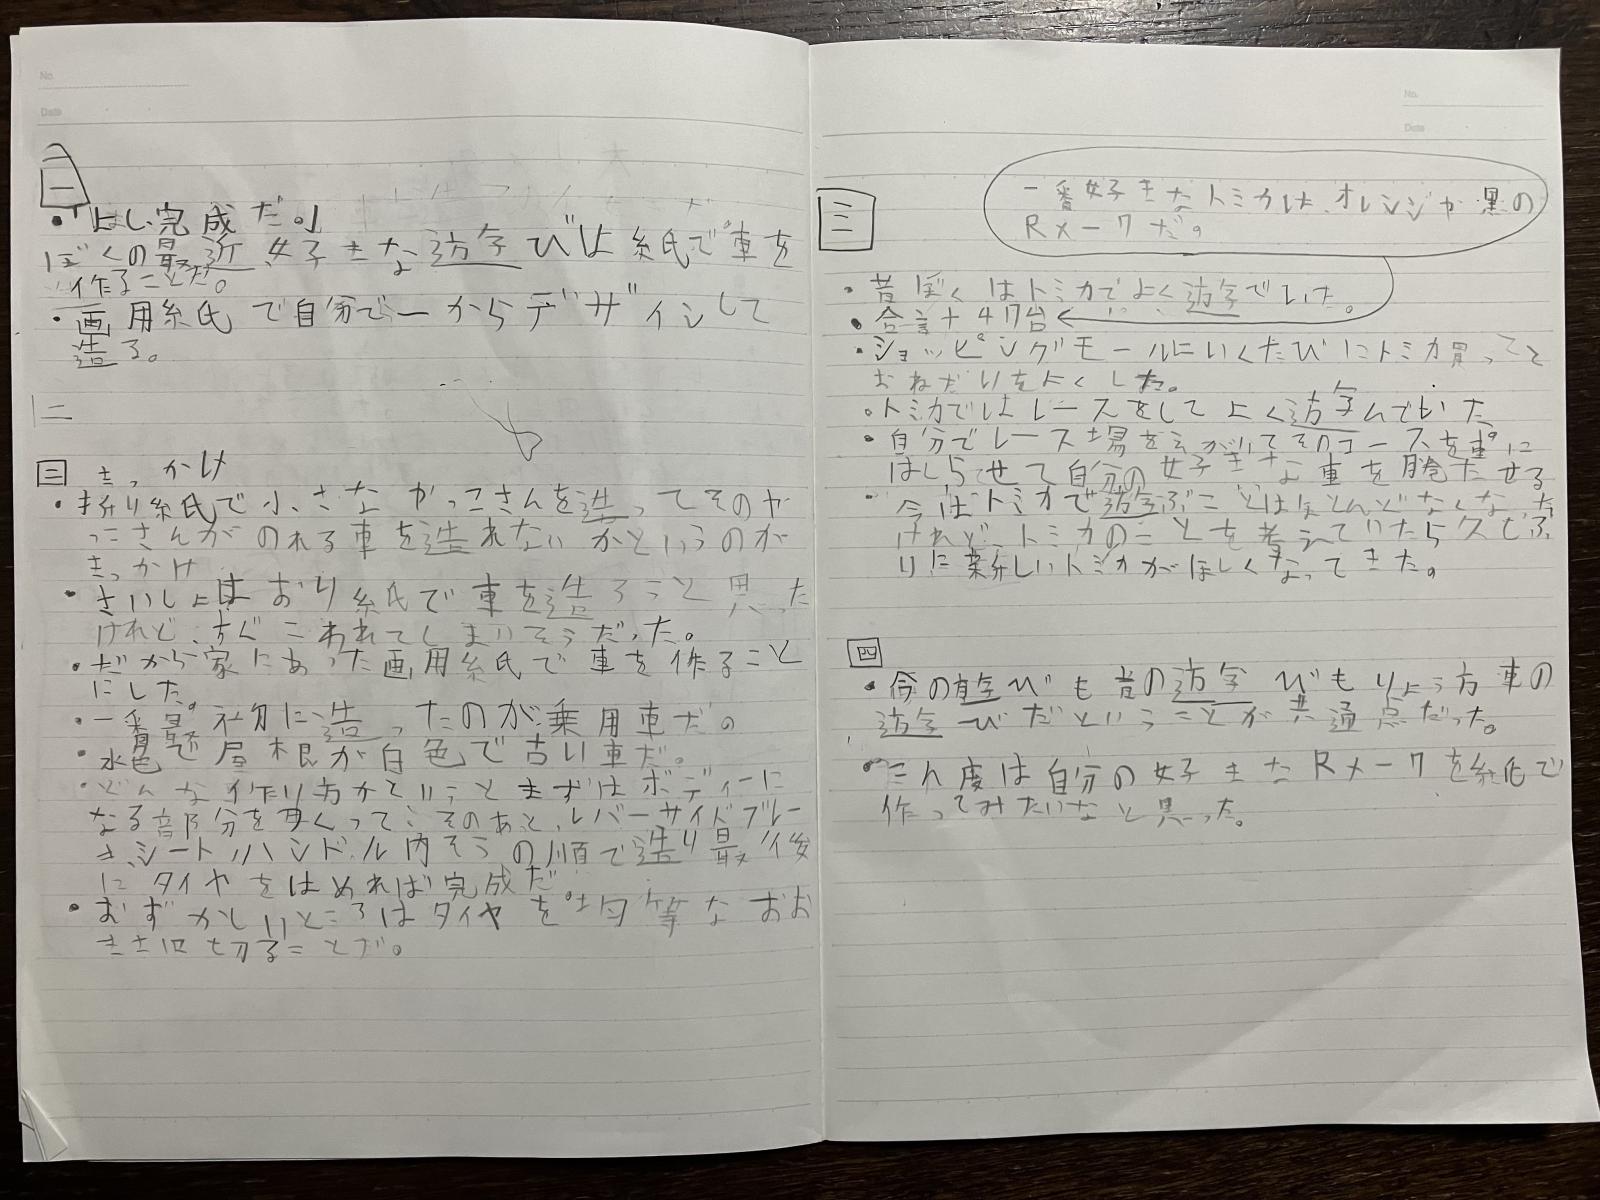 No.
Date
一
・「よし、完成だ。」
ぼくの最近、好きな遊びは紙で車を
作ることだ。
・画用紙で自分で一からデザインして
造る。
二
三 きっかけ
・折り紙で小さなかっこさんを造ってそのや
っこさんがのれる車を造れないかというのが
きっかけ
・さいしょはおり紙で車を造ろうと思った
けれど、すぐこわれてしまいそうだった。
・だから家にあった画用紙で車を作ること
にした。
・一番最初に造ったのが乗用車だ。
・水色で屋根が白色で古い車だ。
・どんな作り方かというとまずはボディーに
なる部分を って、そのあと、レバーサイドブレー
き、シート、ハンドル内そうの順で造り最後
にタイヤをはめれば完成だ。
・むずかしいところはタイヤを均等なおお
きさに切ることだ。
No.
Date
一番好きなトミカは、オレンジか黒の
Rメークだ。
三
・昔ぼくはトミカでよく遊んでいた。
・合計 47台
・ショッピングモールにいくたびにトミカ買ってと
おねだりをよくした。
・トミカではレースをしてよく遊んでいた
・自分でレース場をえがいてそのコースを車に
はしらせて自分の好きな車を勝たせる
・今はトミカで遊ぶことはほとんどなくなった
けれど、トミカのことを考えていたら久しぶ
りに新しいトミカがほしくなってきた。
四
・今の遊びも昔の遊びもりょう方車の
遊びだということが共通点だった。
・こん度は自分の好きなRメークを紙で
作ってみたいなと思った。